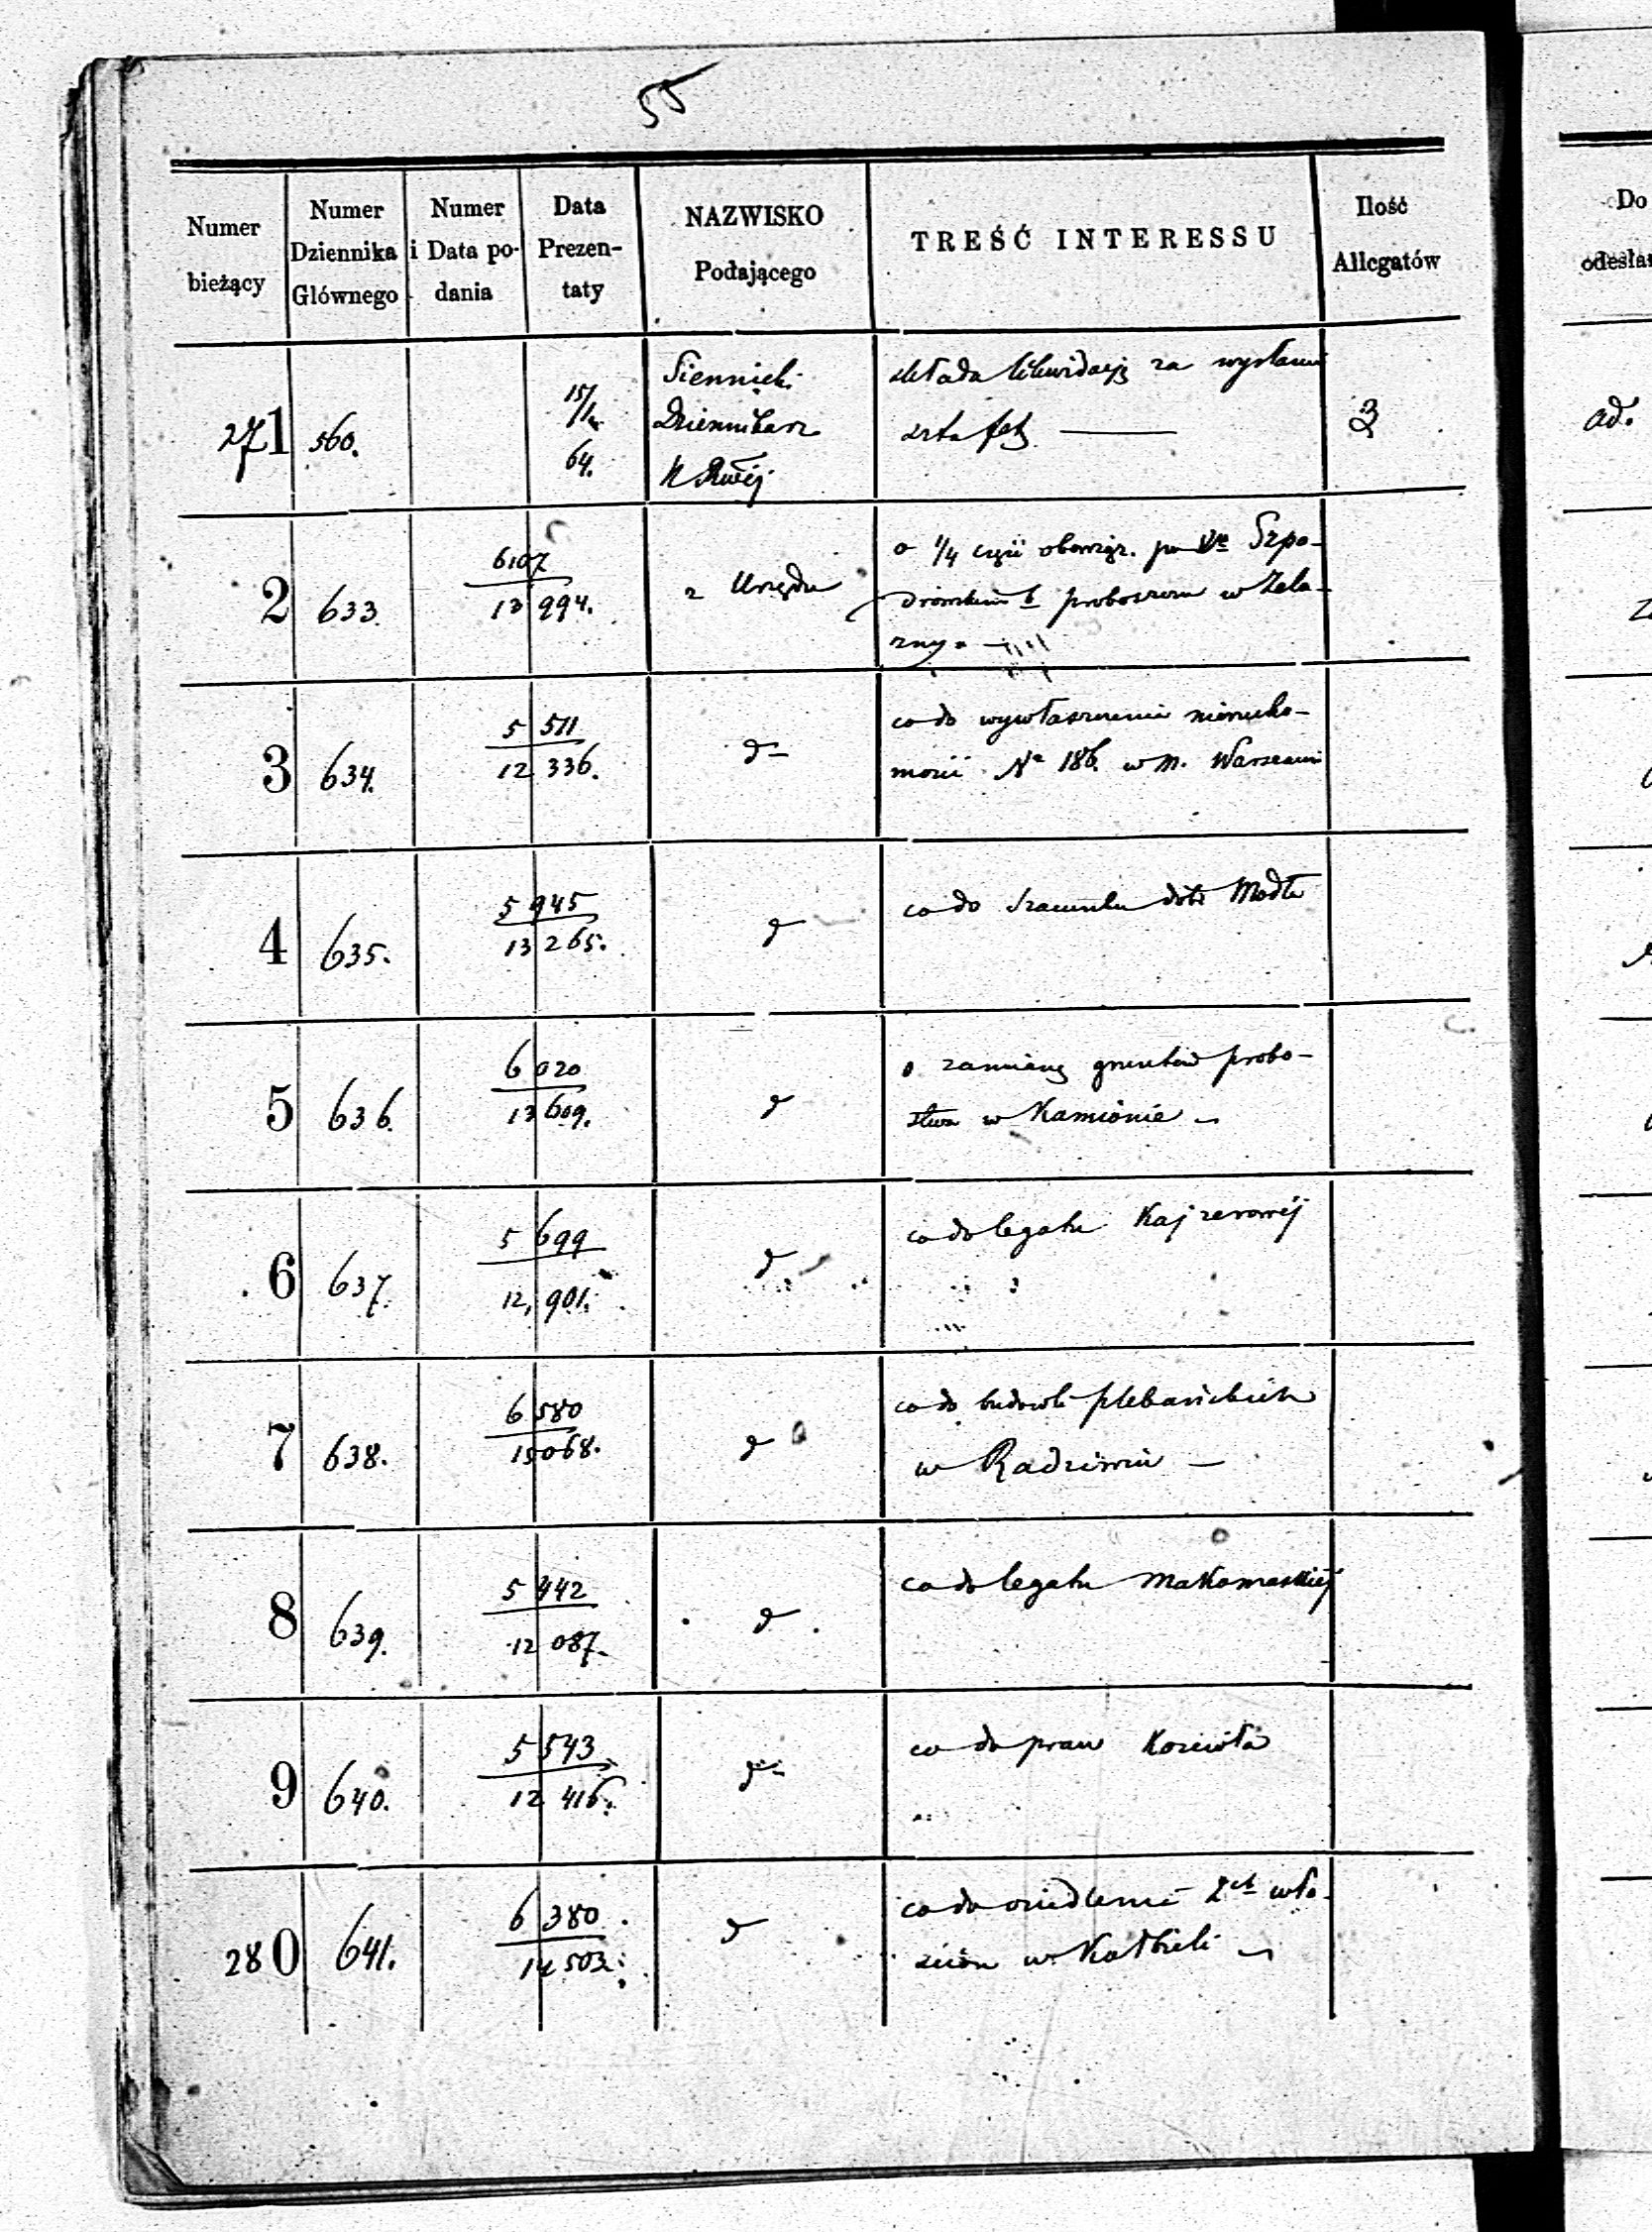 55
Numer bieżący
Numer Dziennika Głównego
Numer i Data po- dania
Data Prezen- taty
NAZWISKO Podającego
TREŚĆ INTERESSU
Ilość Allegatów
Do
271 560. 15/1 64. Siennicki składa likwidacyę za wysłanie
Dziennikarz sztafet — 3 ad.
2 633. 6107 / 13 994. z Urzędu o 1/4 części obowiąz. po Szpo-
proboszczu w Żela-
zny
3 634. 5 511 / 12 336. d- co do wywłaszczenia nierucho-
mości No 186. w m. Warszawie
4 635. 5 945 / 13 265. d co do szacunku dóbr Modła
5 636. 6 020 / 13 609. d o zamianę gruntów probo-
stwa w Kamionie
6 637. 5 699 / 12,901. d co do legatu Kajzerowéj
7 638. 6 580 / 15 068. d co do budowli plebańskich
w Radziwiu —
8 639. 5 442 / 12 087. d co do legatu Makomaskiéj
9 640. 5 543 / 12 416. d- co do praw Kościoła
280 641. 6 380 / 14 503. d co do osiedlenia 2ch wło-
ścian w Kołbieli